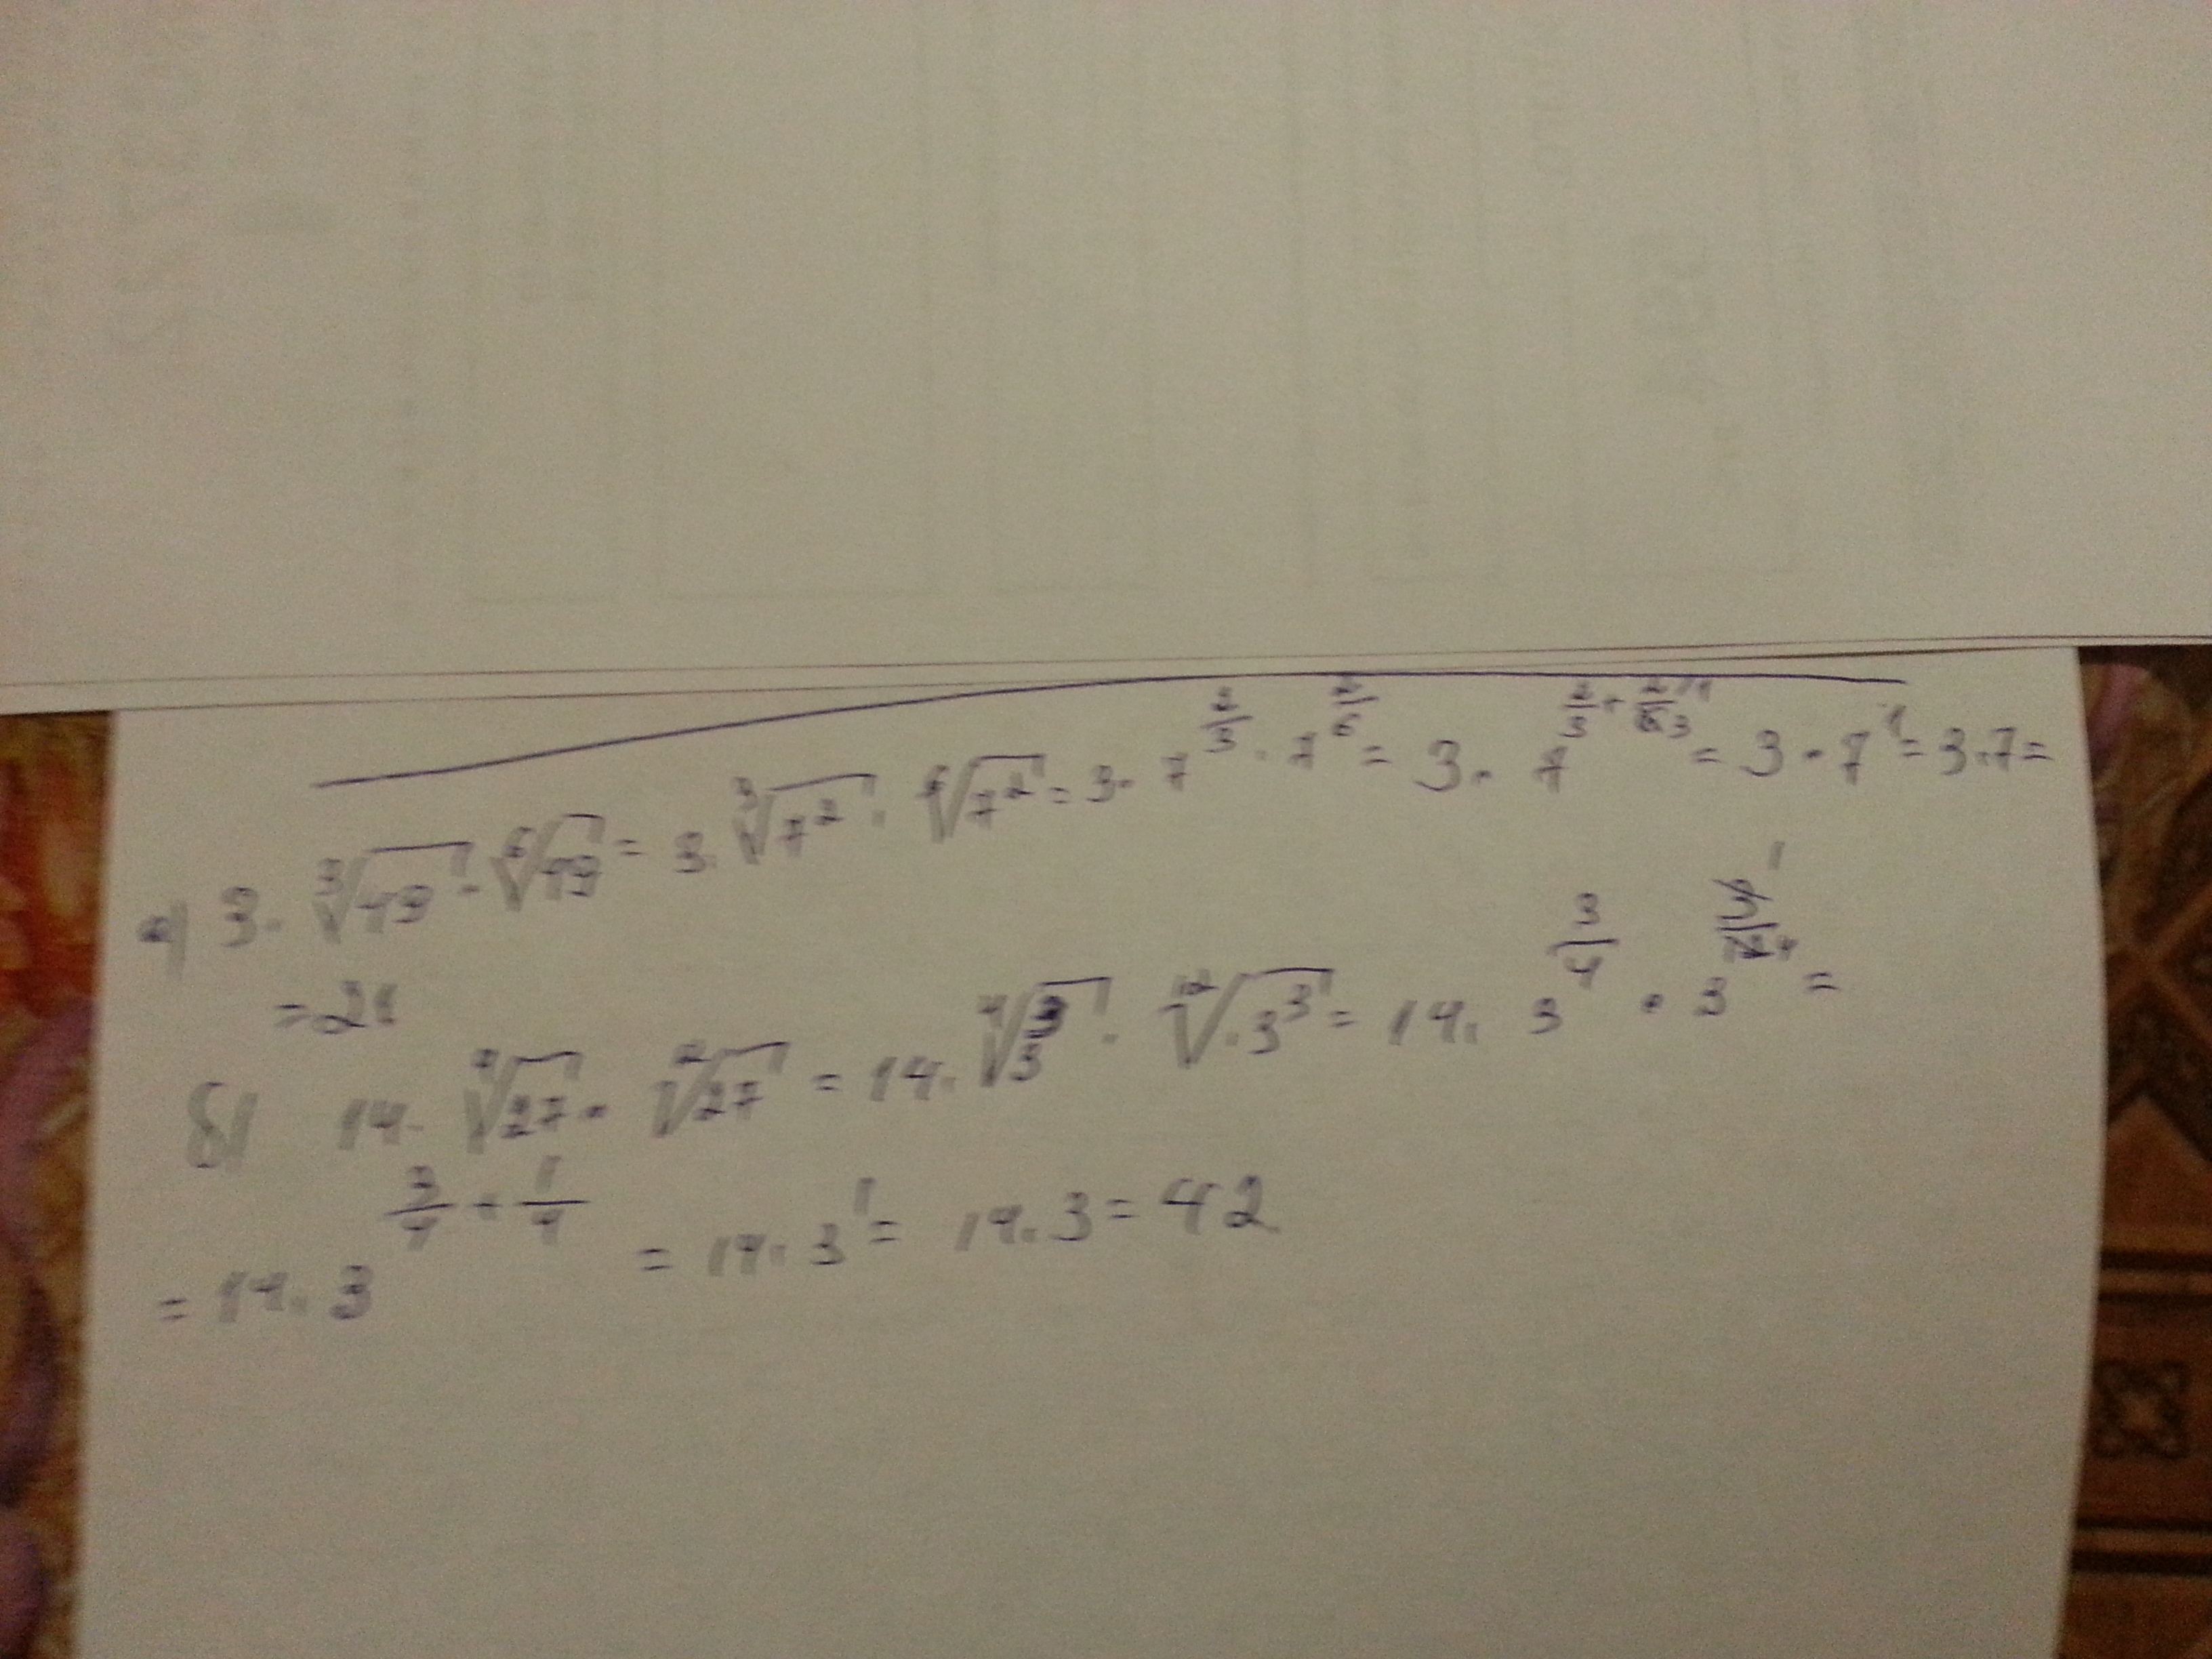 а) 3·∛49·⁶√49 = 3·∛7²·⁶√7² = 3·7^(2/3)·7^(2/6) = 3·7^(2/3+2/6) = 3·7¹ = 3·7 =
= 21
б) 14·⁴√27·¹²√27 = 14·⁴√3³·¹²√3³ = 14·3^(3/4)·3^(3/12) =
= 14·3^(3/4+1/4) = 14·3¹ = 14·3 = 42